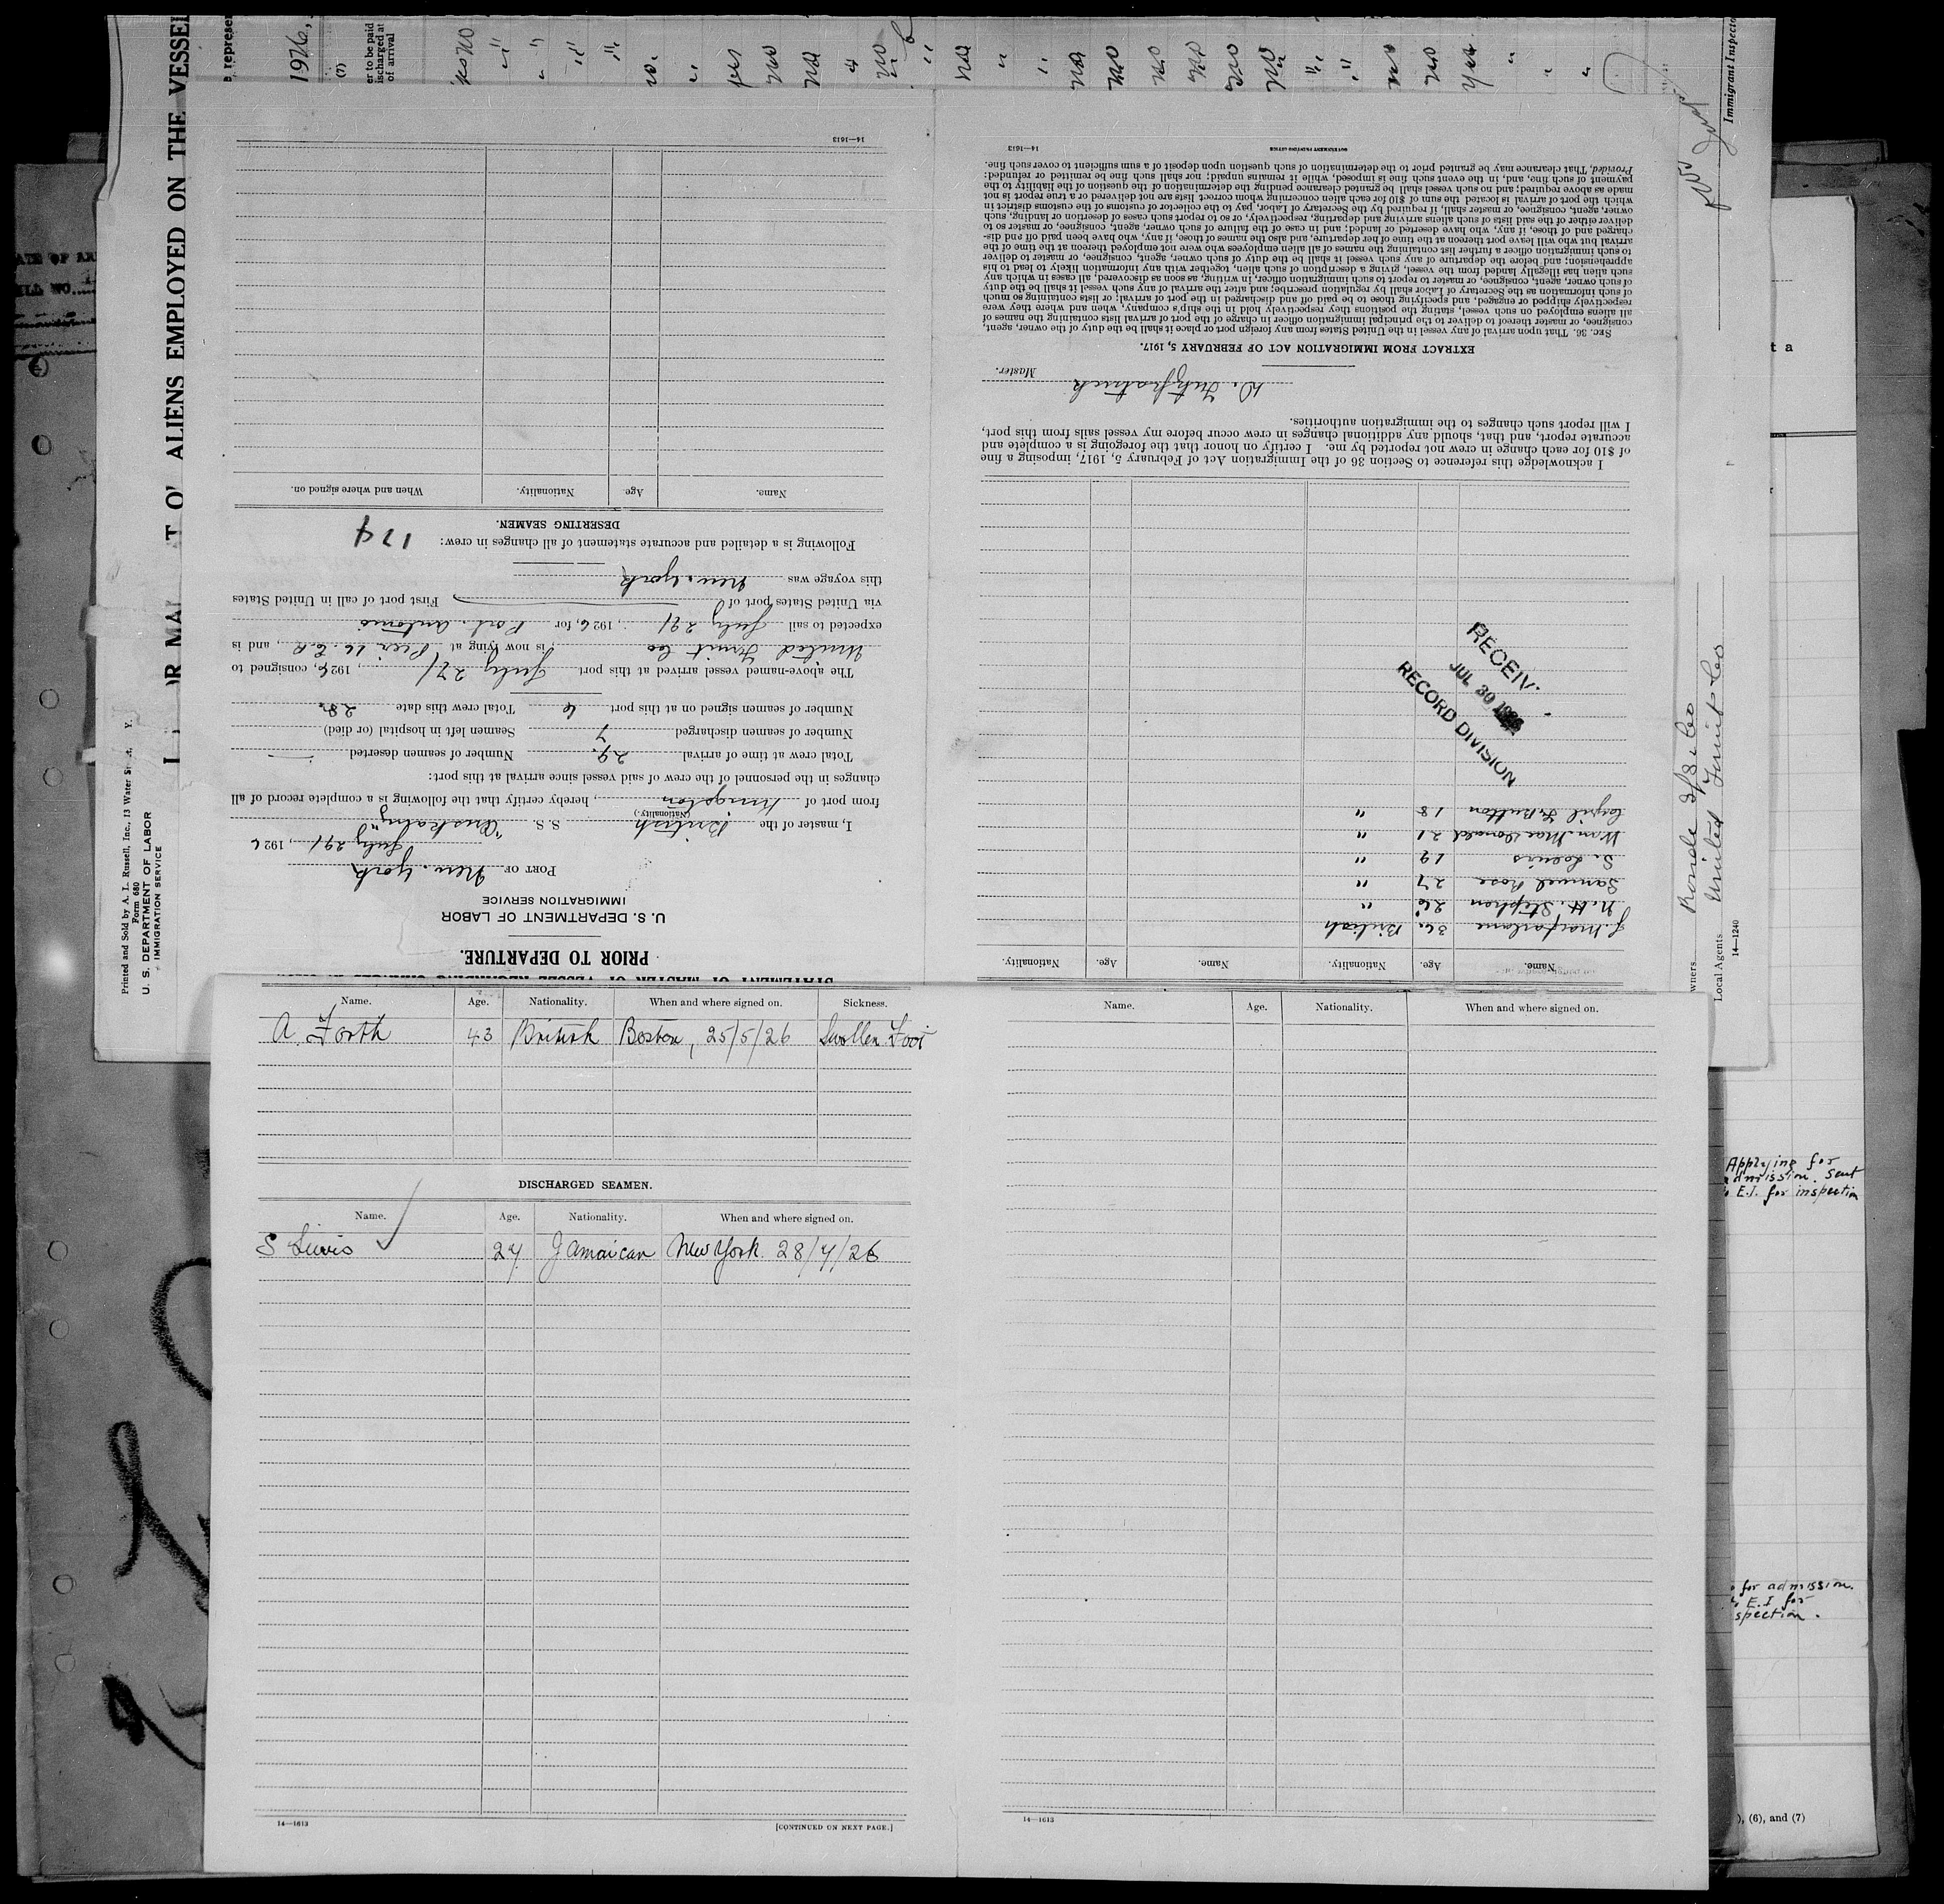 PRIOR TO DEPARTURE.
U. S. DEPARTMENT OF LABOR
IMMIGRATION SERVICE
PORT OF New York
July 29/, 1926
I, master of the British S. S.
(Nationality.)
from port of Kingston, hereby certify that the following is a complete record of all
changes in the personnel of the crew of said vessel since arrival at this port:
Total crew at time of arrival 29. Number of seamen deserted
Number of seamen discharged 7 Seamen left in hospital (or died)
Number of seamen signed on at this port 6 Total crew this date 28.
The above-named vessel arrived at this port July 27/, 1926, consigned to
United Fruit Coo, is now lying at Pier 16. E.R., and is
expected to sail July 29/, 1926, for Port. Antonio
via United States port of First port of call in United States
this voyage was New. York
Following is a detailed and accurate statement of all changes in crew: 174
DESERTING SEAMEN.
Name. Age. Nationality. When and where signed on.
14—1613
Name. Age. Nationality. Name. Age. Nationality.
J. Macfarlane 36. British
N. H. Stephen 26. "
Samuel Rose 27 "
S. Loewis 19 "
Wm. MacDonald 21 "
Cyril 18 "
RECEIV
JUL 30 1926
RECORD DIVISION
I acknowledge this reference to Section 36 of the Immigration Act of February 5, 1917, imposing a fine
of $10 for each change in crew not reported by me. I certify on honor that the foregoing is a complete and
accurate report, and that, should any additional changes in crew occur before my vessel sails from this port,
I will report such changes to the immigration authorities.
D. Fitzpatrick Master.
EXTRACT FROM IMMIGRATION ACT OF FEBRUARY 5, 1917.
SEC. 36. That upon arrival of any vessel in the United States from any foreign port or place it shall be the duty of the owner, agent,
consignee, or master thereof to deliver to the principal immigration officer in charge of the port of arrival lists containing the names of
all aliens employed on such vessel, stating the positions they respectively hold in the ship's company, when and where they were
respectively shipped or engaged, and specifying those to be paid off and discharged in the port of arrival; or lists containing so much
of such information as the Secretary of Labor shall by regulation prescribe; and after the arrival of any such vessel it shall be the duty
of such owner, agent, consignee, or master to report to such immigration officer, in writing, as soon as discovered, all cases in which any
such alien has illegally landed from the vessel, giving a description of such alien, together with any information likely to lead to his
apprehension; and before the departure of any such vessel it shall be the duty of such owner, agent, consignee, or master to deliver
to such immigration officer a further list containing the names of all alien employees who were not employed thereon at the time of the
arrival but who will leave port thereon at the time of her departure, and also the names of those, if any, who have been paid off and dis-
charged and of those, if any, who have deserted or landed; and in case of the failure of such owner, agent, consignee, or master so to
deliver either of the said lists of such aliens arriving and departing, respectively, or so to report such cases of desertion or landing, such
owner, agent, consignee, or master shall, if required by the Secretary of Labor, pay to the collector of customs of the customs district in
which the port of arrival is located the sum of $10 for each alien concerning whom correct lists are not delivered or a true report is not
made as above required; and no such vessel shall be granted clearance pending the determination of the question of the liability to the
payment of such fine, and, in the event such fine is imposed, while it remains unpaid; nor shall such fine be remitted or refunded:
Provided, That clearance may be granted prior to the determination of such question upon deposit of a sum sufficient to cover such fine.
14—1613 GOVERNMENT PRINTING OFFICE
Printed and Sold by A. I. Russell, Inc., 13 Water
Form 680
U. S. DEPARTMENT OF LABOR
IMMIGRATION SERVICE
ALIENS EMPLOYED ON THE VESSEL
1926,
(7)
Immigrant Inspecto
Local Agents United Fruit Co
14—1240
Name. Age. Nationality. When and where signed on. Sickness.
A. Forth 43 British Boston, 25/5/26 Swollen Foot
DISCHARGED SEAMEN.
Name. Age. Nationality. When and where signed on.
S Lewis 27 Jamaican New York. 28/7/26
14—1613 [CONTINUED ON NEXT PAGE.]
Name. Age. Nationality. When and where signed on.
14—1613
Applying for
admission. Sent
E.I. for inspection
for admission.
E.I for
spection.
), (6), and (7)